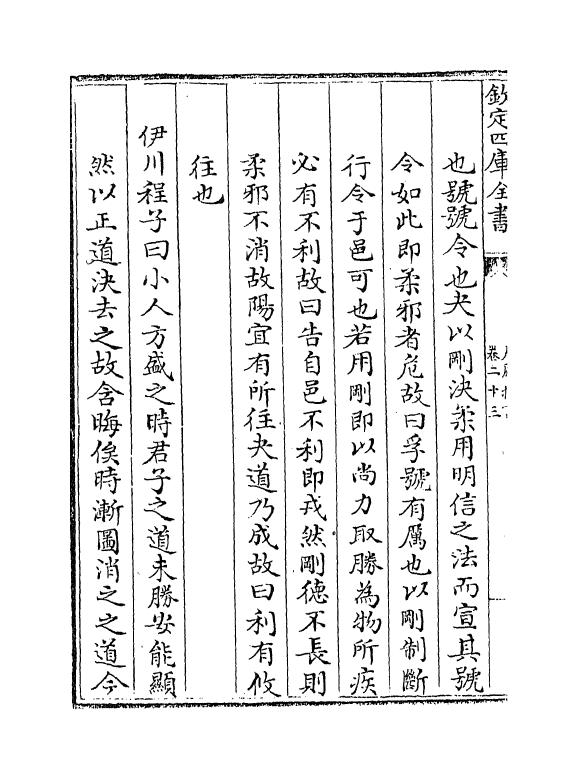 欽定四庫全書
卷二十三
也號號令也夬以剛決柔用明信之法而宣其號
令如此即柔邪者危故曰孚號有厲也以剛制斷
行令于邑可也若用剛即以尚力取勝為物所疾
必有不利故曰告自邑不利即戎然剛德不長則
柔邪不消故陽宜有所往夬道乃成故曰利有攸
往也
伊川程子曰小人方盛之時君子之道未勝安能顯
然以正道決去之故含晦俟時漸圖消之之道今